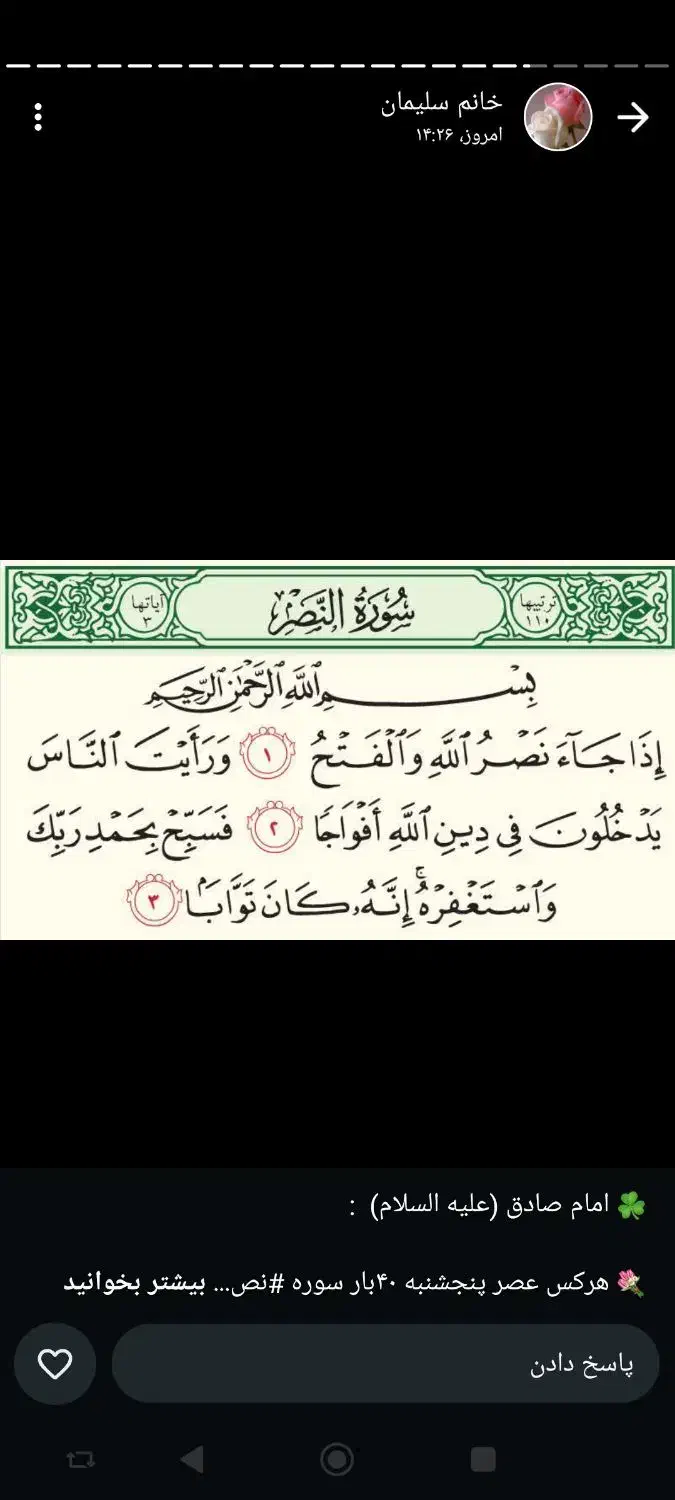 خانم سلیمان
امروز، ۱۴:۲۶
ترتيبها
١١٠
سُورَةُ النَّصْرِ
آياتها
٣
بِسْمِ ٱللَّهِ ٱلرَّحْمَٰنِ ٱلرَّحِيمِ
إِذَا جَآءَ نَصْرُ ٱللَّهِ وَٱلْفَتْحُ ١ وَرَأَيْتَ ٱلنَّاسَ
يَدْخُلُونَ فِى دِينِ ٱللَّهِ أَفْوَاجًا ٢ فَسَبِّحْ بِحَمْدِ رَبِّكَ
وَٱسْتَغْفِرْهُ ۚ إِنَّهُۥ كَانَ تَوَّابًۢا ٣
☘️ امام صادق (علیه السلام) :
🌷 هرکس عصر پنجشنبه ۴۰بار سوره #نص... بیشتر بخوانید
پاسخ دادن